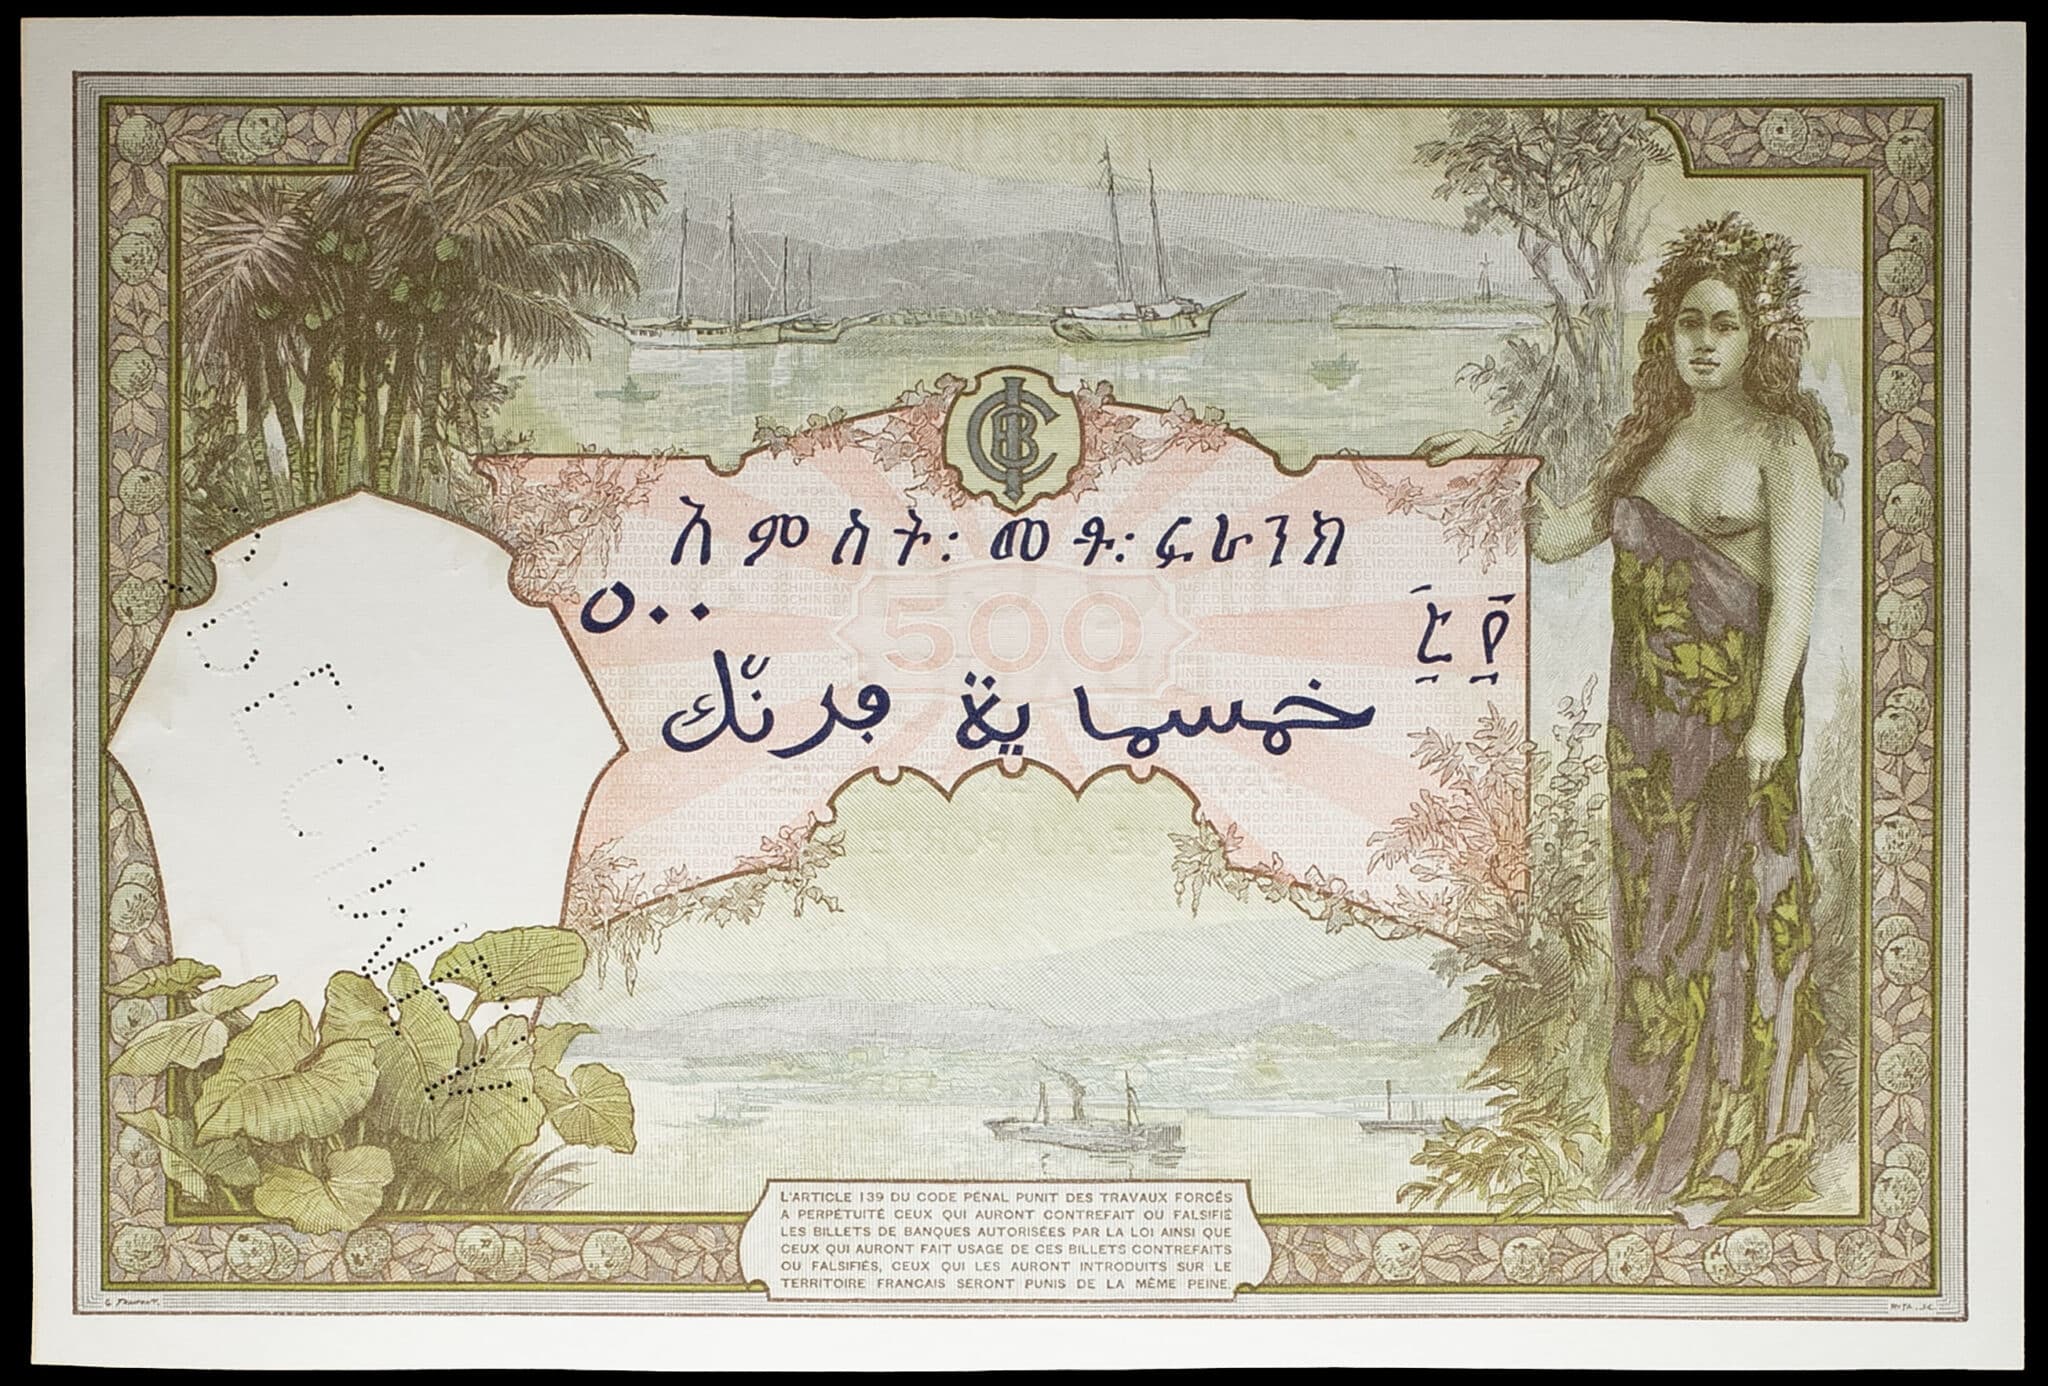 CIB
አምስት፡መቶ፡ፍራንክ
٥٠٠
500
፭፻
خمسماية فرنك
SPECIMEN
L'ARTICLE 139 DU CODE PÉNAL PUNIT DES TRAVAUX FORCÉS
A PERPÉTUITÉ CEUX QUI AURONT CONTREFAIT OU FALSIFIÉ
LES BILLETS DE BANQUES AUTORISÉES PAR LA LOI AINSI QUE
CEUX QUI AURONT FAIT USAGE DE CES BILLETS CONTREFAITS
OU FALSIFIÉS, CEUX QUI LES AURONT INTRODUITS SUR LE
TERRITOIRE FRANCAIS SERONT PUNIS DE LA MÊME PEINE.